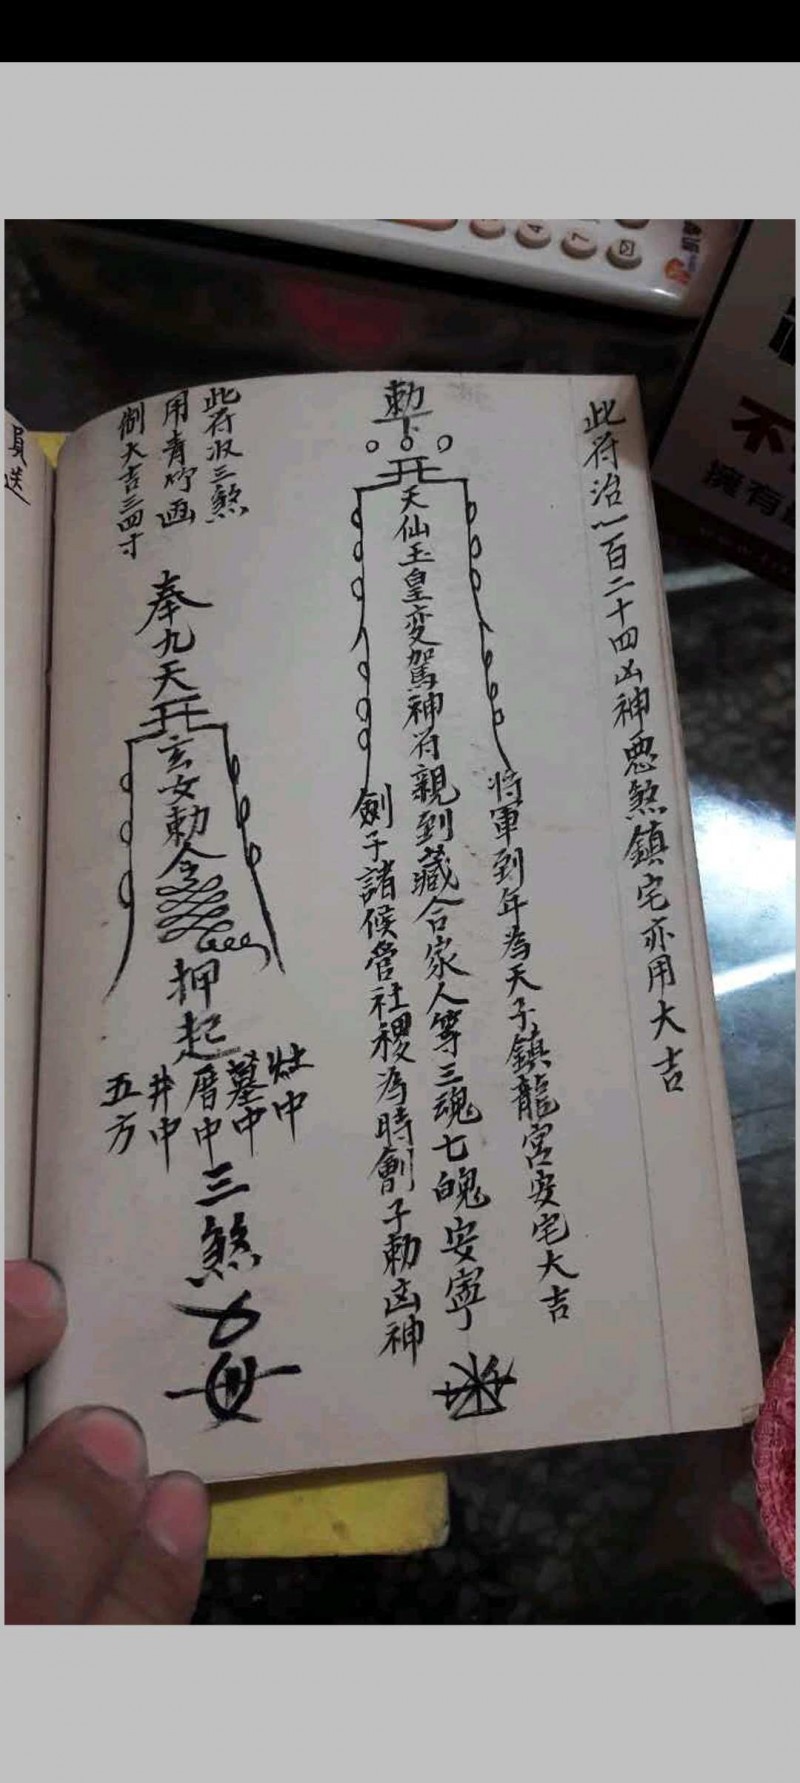 此符治一百二十四凶神惡煞鎮宅亦用大吉
勅下
天仙玉皇变駕神符親到藏合家人等三魂七魄安寧
將軍到年為天子鎮龍宮安宅大吉
劍子諸候管社稷為時劊子勅凶神
此符收三煞
用青竹画
倒大吉三四寸
奉九天
玄女勅令
押起
灶中
墓中
厝中
井中
五方
三煞
員送
不
擁有
4
7